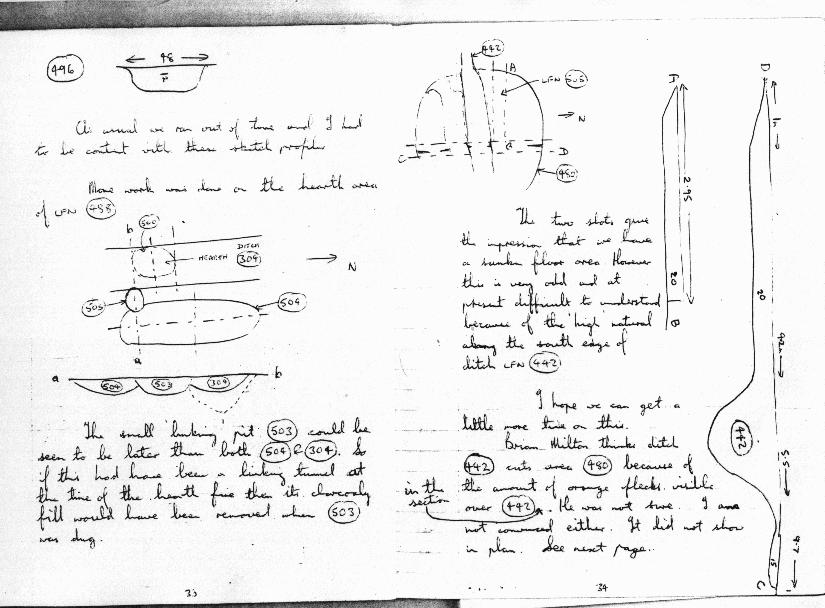 496
48
F
As usual we ran out of time and I had
to be content with these sketch profiles
More work was done on the hearth area
of LFN 488
b
500
DITCH
HEARTH 304
N
503
504
a
a
504
503
304
b
The small linking pit 503 could be
seen to be later than both 504 & 304. So
if this had have been a linking tunnel at
the time of the hearth fire then its charcoaly
fill would have been removed when 503
was dug.
33
442
A
LFN 505
N
C
D
480
The two slots give
the impression that we have
a sunken floor area However
this is very odd and at
present difficult to understand
because of the high natural
along the south edge of
ditch LFN 442
I hope we can get a
little more time on this.
Brian Milton thinks ditch
442 cuts area 480 because of
the amount of orange flecks visible
in the section
over 442. He was not sure. I am
not convinced either. It did not show
in plan. See next page.
34
A
2.95
20
B
D
20
442
5.5
15
C